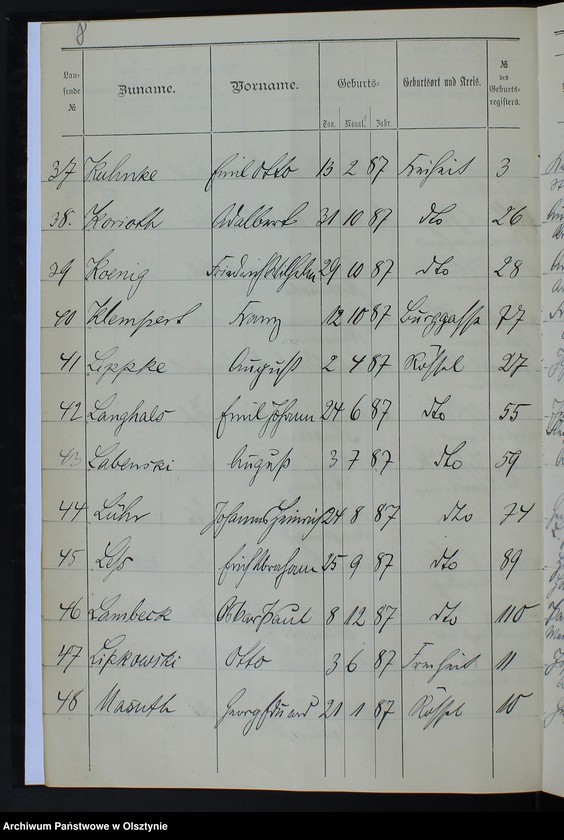 8
Lau-
fende
№
Zuname.
Vorname.
Geburts-
Tag. Monat. Jahr.
Geburtsort und Kreis.
№
des
Geburts-
registers.
37 Kuhnke Emil Otto 13 2 87 Freiheit 3
38. Korioth Adalbert 31 10 87 dto 26
39 Koenig Friedrich Wilhelm 29 10 87 dto 28
40 Klempert Franz 12 10 87 Burggasse 77
41 Lippke August 2 4 87 Rössel 27
42 Langhals Emil Johann 24 6 87 dto 55
43 Labenski August 3 7 87 dto 59
44 Lühr Johannes Heinrich 24 8 87 dto 74
45 Erich Abraham 25 9 87 dto 89
46 Lambeck Oskar Paul 8 12 87 dto 110
47 Lipkowski Otto 3 6 87 Freiheit 11
48 Masuth Georg Eduard 21 1 87 Rössel 10
Archiwum Państwowe w Olsztynie